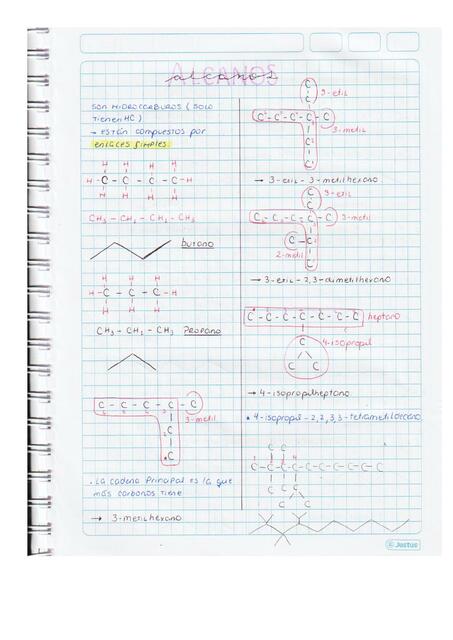 ALCANOS
alcanos
SON HIDROCARBUROS (SOLO
TIENEN HC)
→ ESTÁN COMPUESTOS POR
ENLACES SIMPLES.
H H H H
H-C-C-C-C-H
H H H H
CH3 - CH2 - CH2 - CH3
butano
H H H
H-C-C-C-H
H H H
CH3 - CH2 - CH3 PROPANO
C-C-C-C-C
3-metil
C
C
• La cadena principal es la que
más carbonos tiene
→ 3-metilhexano
C
3-etil
C
C-C-C-C-C
3-metil
C
C
C
→ 3-etil-3-metilhexano
C
3-etil
C
C-C-C-C-C 3-metil
C-C
2-metil
C
→ 3-etil-2,3-dimetilhexano
C-C-C-C-C-C-C heptano
4-isopropil
C
C C
→ 4-isopropilheptano
• 4-isopropil-2,2,3,3-tetrametiloctano
C C
C-C-C-C-C-C-C-C
C C C
C C
Justus